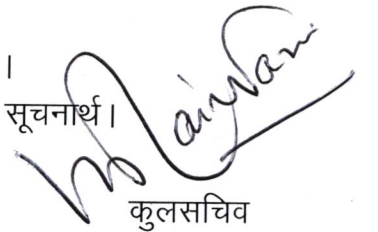 ।
सूचनार्थ।
कुलसचिव